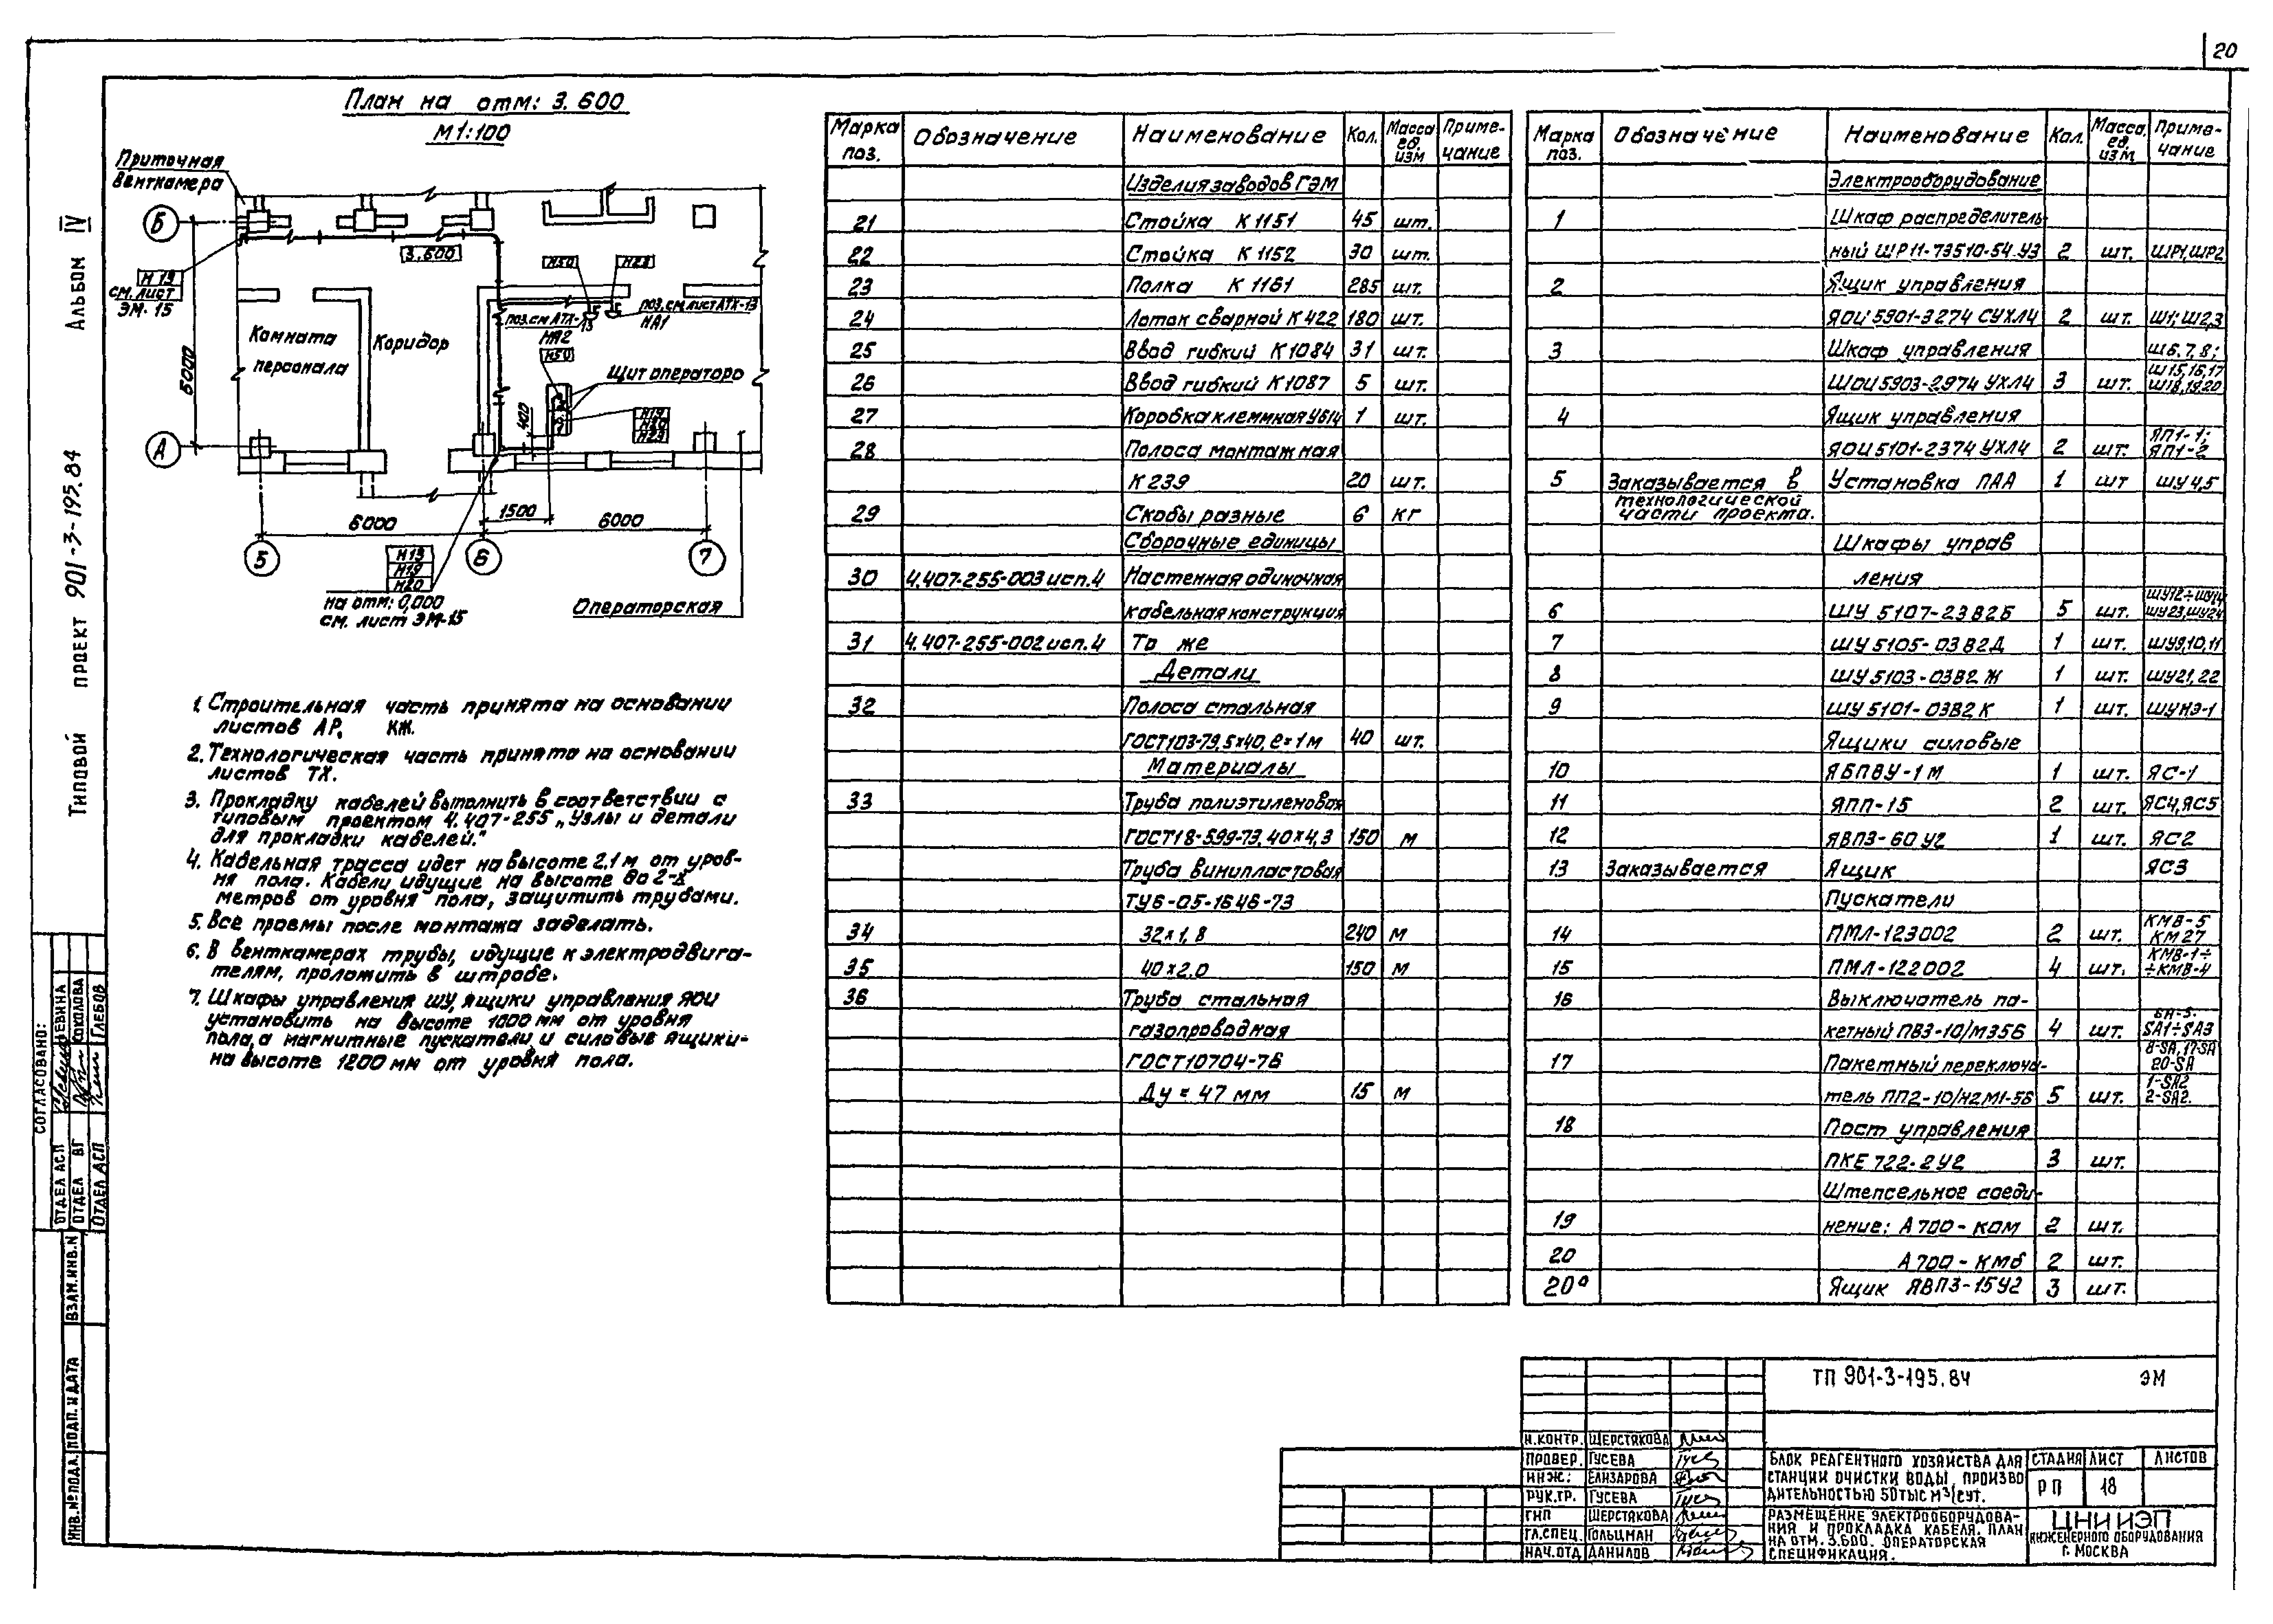 20
План на отм: 3.600
М1:100
Приточная
венткамера
Б
А
3.600
М19
см. лист
ЭМ-15
Комната
персонала
Коридор
6000
поз. см. лист АТХ-13
НА1
поз. см АТХ-
13
НА2
М50
Щит оператора
400
1500
6000
6000
5
6
7
М13
М19
М20
на отм: 0,000
см. лист ЭМ-15
Операторская
1. Строительная часть принята на основании
листов АР, КЖ.
2. Технологическая часть принята на основании
листов ТХ.
3. Прокладку кабелей выполнить в соответствии с
типовым проектом 4.407-255 „Узлы и детали
для прокладки кабелей."
4. Кабельная трасса идет на высоте 2,1 м от уров-
ня пола. Кабели идущие на высоте до 2-х
метров от уровня пола, защитить трубами.
5. Все проемы после монтажа заделать.
6. В венткамерах трубы, идущие к электродвига-
телям, проложить в штробе.
7. Шкафы управления ШУ, ящики управления ЯОИ
установить на высоте 1000 мм от уровня
пола, а магнитные пускатели и силовые ящики-
на высоте 1200 мм от уровня пола.
Марка поз. Обозначение Наименование Кол. Масса ед. изм Приме-чание
Изделия заводов ГЭМ
21 Стойка К 1151 45 шт.
22 Стойка К 1152 30 шт.
23 Полка К 1161 285 шт.
24 Лоток сварной К 422 180 шт.
25 Ввод гибкий К 1084 31 шт.
26 Ввод гибкий К 1087 5 шт.
27 Коробка клеммная У614 1 шт.
28 Полоса монтажная
К 239 20 шт.
29 Скобы разные 6 кг
Сборочные единицы
30 4.407-255-003 исп.4 Настенная одиночная
кабельная конструкция
31 4.407-255-002 исп.4 То же
Детали
32 Полоса стальная
ГОСТ103-79, 5×40, e=1м 40 шт.
Материалы
33 Труба полиэтиленовая
ГОСТ18-599-73, 40×4,3 150 м
Труба винипластовая
ТУ6-05-1646-73
34 32×1,8 240 м
35 40×2.0 150 м
36 Труба стальная
газопроводная
ГОСТ10704-76
Ду = 47 мм 15 м
Марка поз. Обозначение Наименование Кол. Масса ед. изм Приме-чание
Электрооборудование
1 Шкаф распределитель-
ный ШР11-73510-54 У3 2 шт. ШР1, ШР2
2 Ящик управления
ЯОИ 5901-3274 СУХЛ4 2 шт. Ш1; Ш2,3
3 Шкаф управления Ш6,7,8;
ШОИ 5903-2974 УХЛ4 3 шт. Ш15,16,17 Ш18,19,20
4 Ящик управления
ЯОИ 5101-2374 УХЛ4 2 шт. ЯП1-1; ЯП1-2
5 Заказывается в Установка ПАА 1 шт ШУ4,5
технологической
части проекта.
Шкафы управ
ления
6 ШУ 5107-23В2Б 5 шт. ШУ12÷ШУ14 ШУ23, ШУ24
7 ШУ 5105-03В2Д 1 шт. ШУ9,10,11
8 ШУ 5103-03В2 Ж 1 шт. ШУ21,22
9 ШУ 5101-03В2 К 1 шт. ШУНЭ-1
Ящики силовые
10 ЯБПВУ-1М 1 шт. ЯС-1
11 ЯПП-15 2 шт. ЯС4, ЯС5
12 ЯВПЗ-60 У2 1 шт. ЯС2
13 Заказывается Ящик ЯС3
Пускатели
14 ПМЛ-123002 2 шт. КМВ-5 КМ27
15 ПМЛ-122002 4 шт. КМВ-1÷ ÷КМВ-4
16 Выключатель па-
кетный ПВ3-10/М356 4 шт. SA1÷SA3
17 Пакетный переключа- 8-SA, 17-SA 20-SA
тель ПП2-10/Н2М1-56 5 шт. 1-SA2 2-SA2.
18 Пост управления
ПКЕ 722-2У2 3 шт.
Штепсельное соеди-
19 нение: А 700-КОМ 2 шт.
20 А 700-КМб 2 шт.
20а Ящик ЯВПЗ-15У2 3 шт.
ТП 901-3-195.84 ЭМ
Н.КОНТР. ШЕРСТЯКОВА
ПРОВЕР. ГУСЕВА
ИНЖ: ЕЛИЗАРОВА
РУК.ГР. ГУСЕВА
ГИП ШЕРСТЯКОВА
ГЛ.СПЕЦ. ГОЛЬЦМАН
НАЧ.ОТД ДАНИЛОВ
БЛОК РЕАГЕНТНОГО ХОЗЯЙСТВА ДЛЯ
СТАНЦИИ ОЧИСТКИ ВОДЫ, ПРОИЗВО
ДИТЕЛЬНОСТЬЮ 50 ТЫС М³/СУТ.
РАЗМЕЩЕНИЕ ЭЛЕКТРООБОРУДОВА-
НИЯ И ПРОКЛАДКА КАБЕЛЯ. ПЛАН
НА ОТМ. 3.600. ОПЕРАТОРСКАЯ
СПЕЦИФИКАЦИЯ.
СТАДИЯ ЛИСТ ЛИСТОВ
РП 18
ЦНИИЭП
ИНЖЕНЕРНОГО ОБОРУДОВАНИЯ
Г. МОСКВА
Типовой проект 901-3-195.84 Альбом IV
СОГЛАСОВАНО:
ОТДЕЛ АСП
ОТДЕЛ ВГ СОКОЛОВА
ОТДЕЛ АСП ГЛЕБОВ
ВЗАМ.ИНВ.N
ПОДП. И ДАТА
ИНВ.№ПОДЛ.